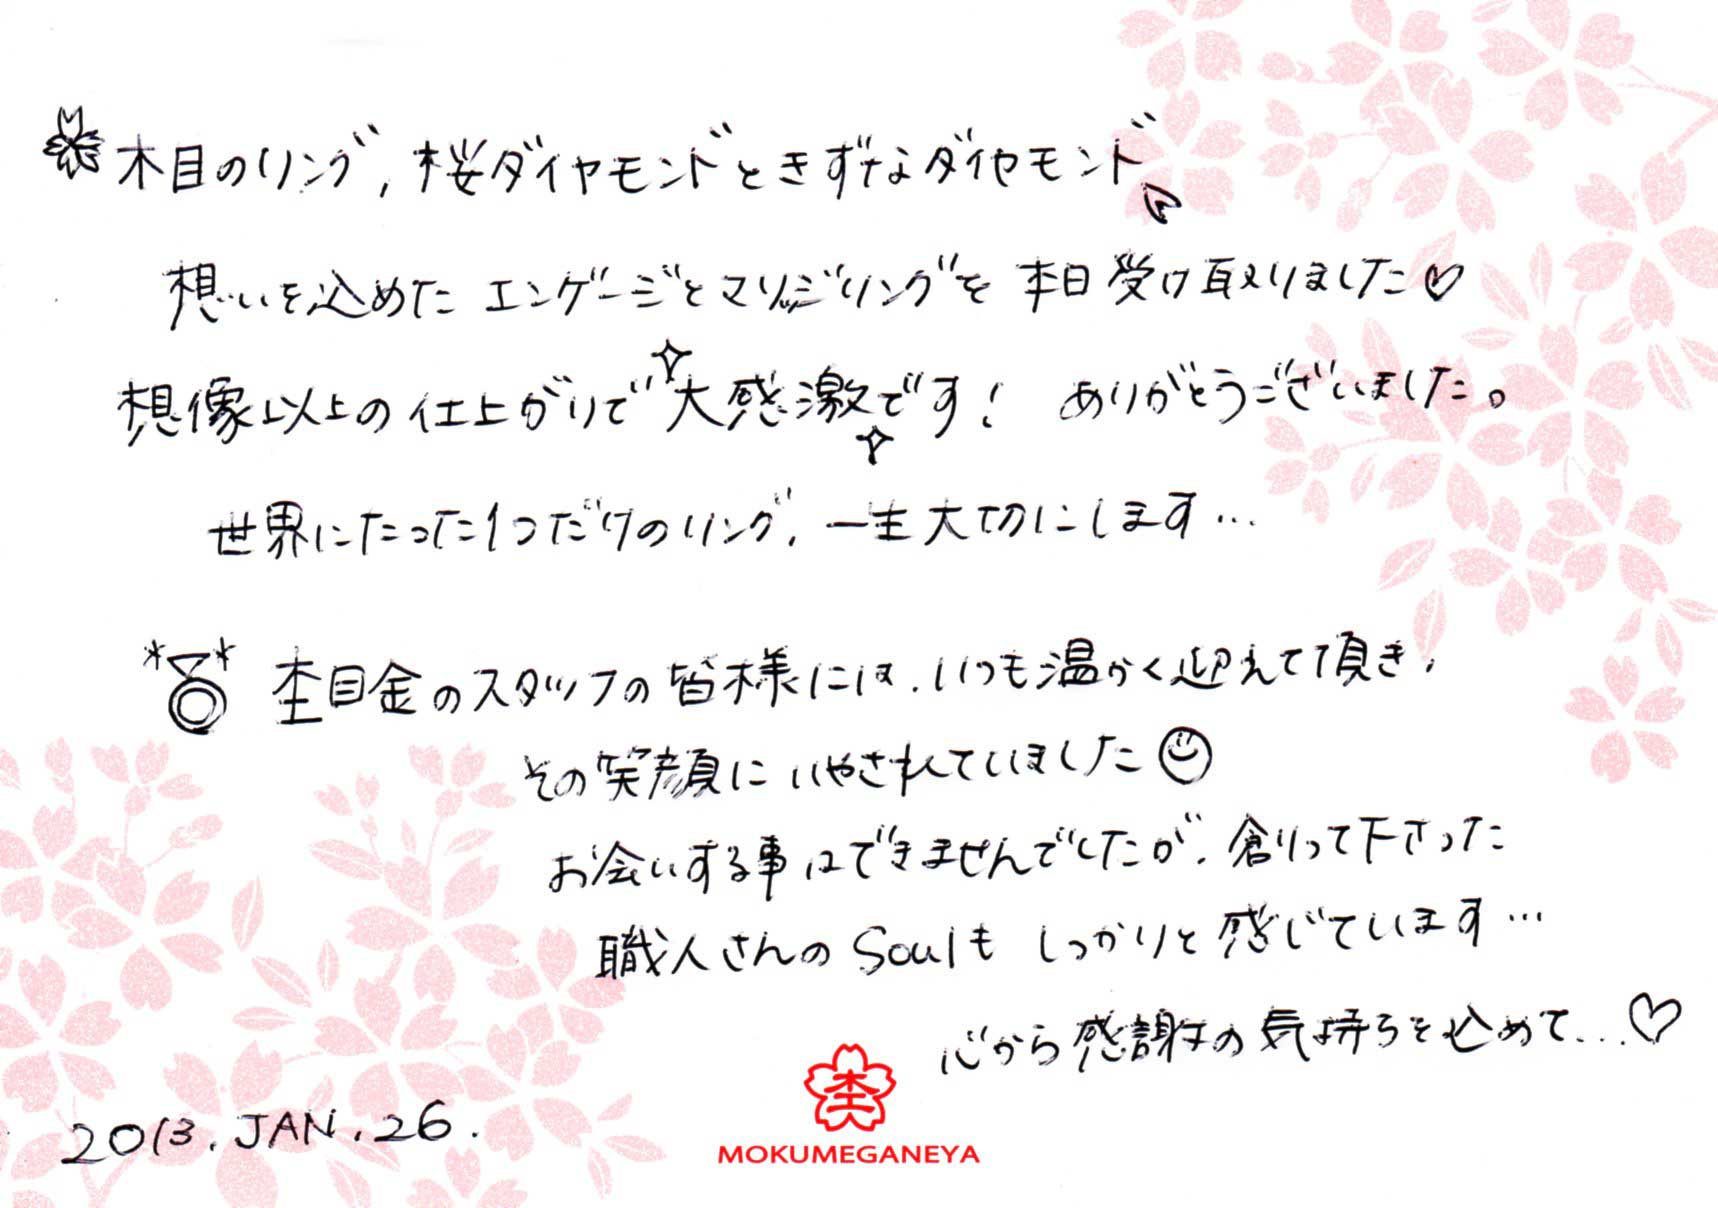 木目のリング, 桜ダイヤモンドときずなダイヤモンド
想いを込めた エンゲージとマリッジリングを 本日受け取りました♡
想像以上の仕上がりで大感激です! ありがとうございました。
世界にたった1つだけのリング、一生大切にします…
杢目金のスタッフの皆様には、いつも温かく迎えて頂き、
その笑顔にいやされていました
お会いする事はできませんでしたが、創って下さった
職人さんのSoulも しっかりと感じています…
心から感謝の気持ちを込めて…♡
2013. JAN. 26.
杢
MOKUMEGANEYA